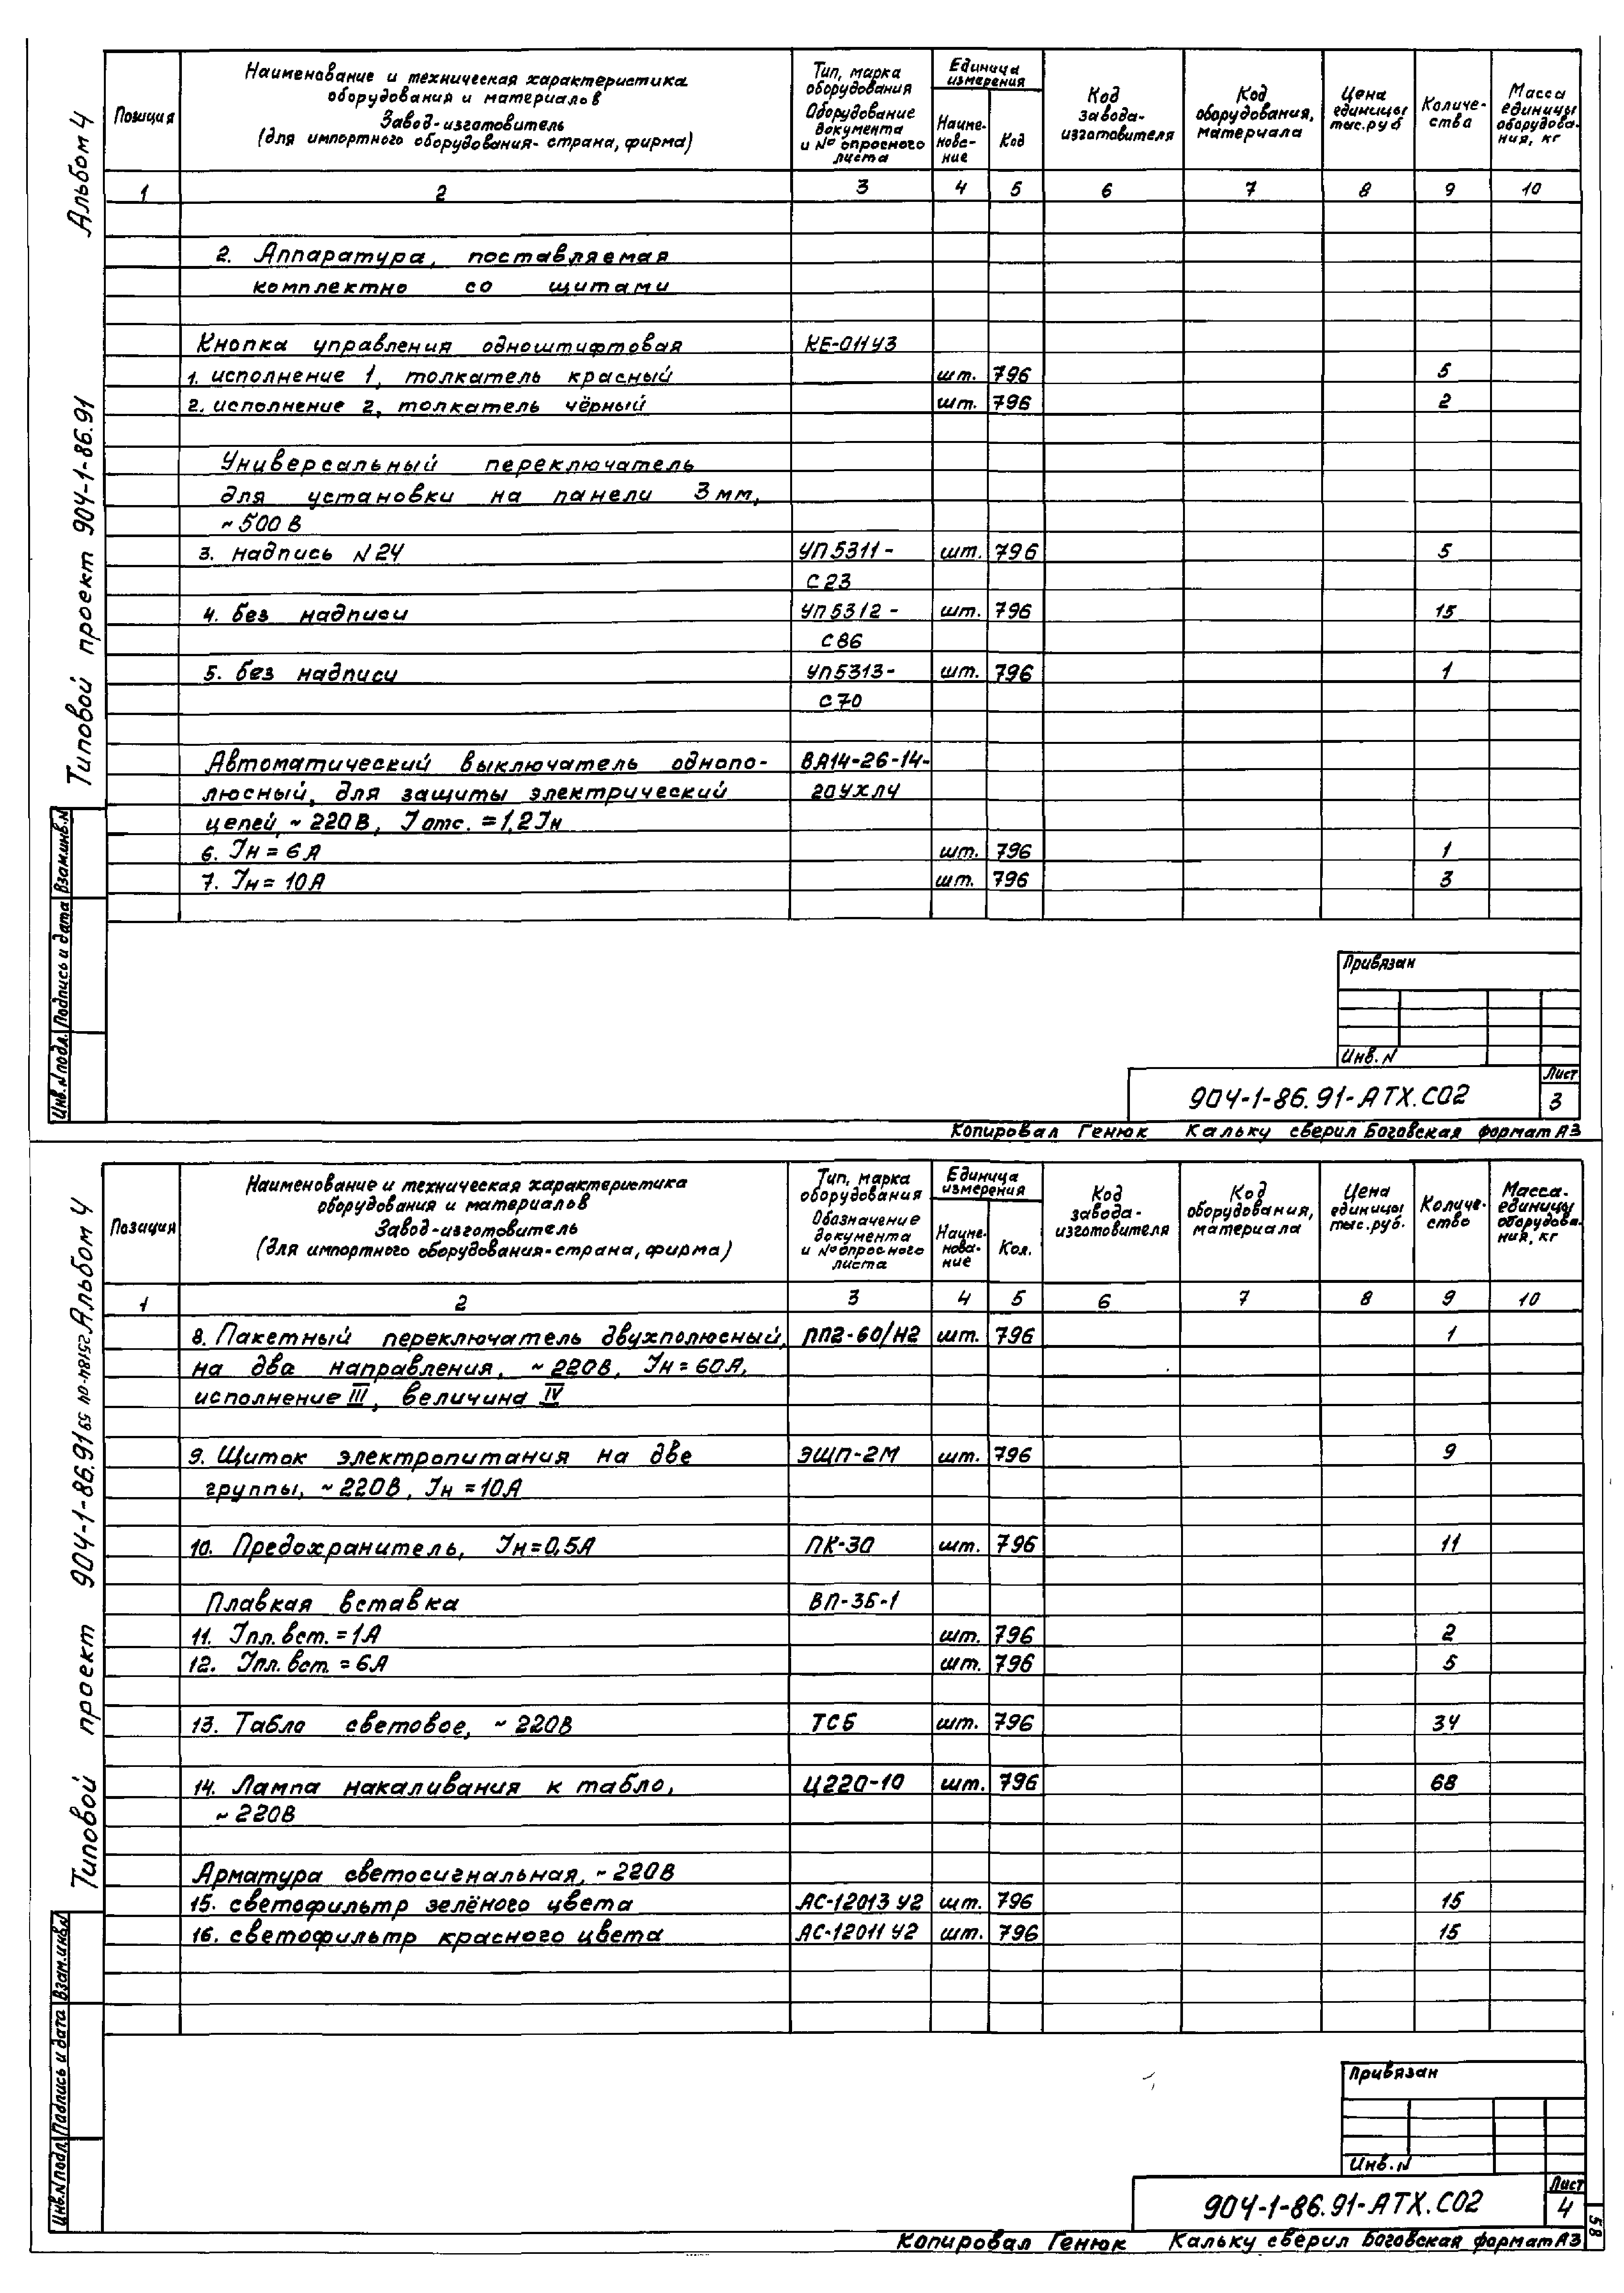 Альбом 4
Типовой проект 904-1-86.91
Позиция
Наименование и техническая характеристика
оборудования и материалов
Завод-изготовитель
(для импортного оборудования- страна, фирма)
Тип, марка
оборудования
Оборудование
документа
и № опросного
листа
Единица
измерения
Наиме-
нова-
ние
Код
Код
завода-
изготовителя
Код
оборудования,
материала
Цена
единицы
тыс.руб
Количе-
ства
Масса
единицы
оборудова-
ния, кг
1 2 3 4 5 6 7 8 9 10
2. Аппаратура, поставляемая
комплектно со щитами
Кнопка управления одноштифтовая КЕ-011У3
1. исполнение 1, толкатель красный шт. 796 5
2. исполнение 2, толкатель чёрный шт. 796 2
Универсальный переключатель
для установки на панели 3мм,
~500В
3. надпись N24 УП5311- шт. 796 5
С23
4. без надписи УП5312- шт. 796 15
С86
5. без надписи УП5313- шт. 796 1
С70
Автоматический выключатель однопо- ВА14-26-14-
люсный, для защиты электрический 20УХЛ4
цепей, ~220В, Iотс.=1,2Iн
6. Iн=6А шт. 796 1
7. Iн=10А шт. 796 3
Взам.инв.N
Подпись и дата
Инв.N подл.
Привязан
Инв.N
904-1-86.91-АТХ.СО2
Лист
3
Копировал Генюк Кальку сверил Боговская формат А3
Типовой проект 904-1-86.91 Альбом 4
25184-04 59
Позиция
Наименование и техническая характеристика
оборудования и материалов
Завод-изготовитель
(для импортного оборудования-страна, фирма)
Тип, марка
оборудования
Обозначение
документа
и № опросного
листа
Единица
измерения
Наиме-
нова-
ние
Кол.
Код
завода-
изготовителя
Код
оборудования,
материала
Цена
единицы
тыс.руб.
Количе-
ство
Масса
единицы
оборудова-
ния, кг
1 2 3 4 5 6 7 8 9 10
8. Пакетный переключатель двухполюсный, ПП2-60/Н2 шт. 796 1
на два направления, ~220В, Iн=60А,
исполнение III, величина IV
9. Щиток электропитания на две ЭЩП-2М шт. 796 9
группы, ~220В, Iн=10А
10. Предохранитель, Iн=0,5А ПК-30 шт. 796 11
Плавкая вставка ВП-3Б-1
11. Iпл.вст.=1А шт. 796 2
12. Iпл.вст.=6А шт. 796 5
13. Табло световое, ~220В ТСБ шт. 796 34
14. Лампа накаливания к табло, Ц220-10 шт. 796 68
~220В
Арматура светосигнальная, ~220В
15. светофильтр зелёного цвета АС-12013У2 шт. 796 15
16. светофильтр красного цвета АС-12011У2 шт. 796 15
Взам.инв.N
Подпись и дата
Инв.N подл.
Привязан
Инв.N
904-1-86.91-АТХ.СО2
Лист
4
58
Копировал Генюк Кальку сверил Боговская формат А3